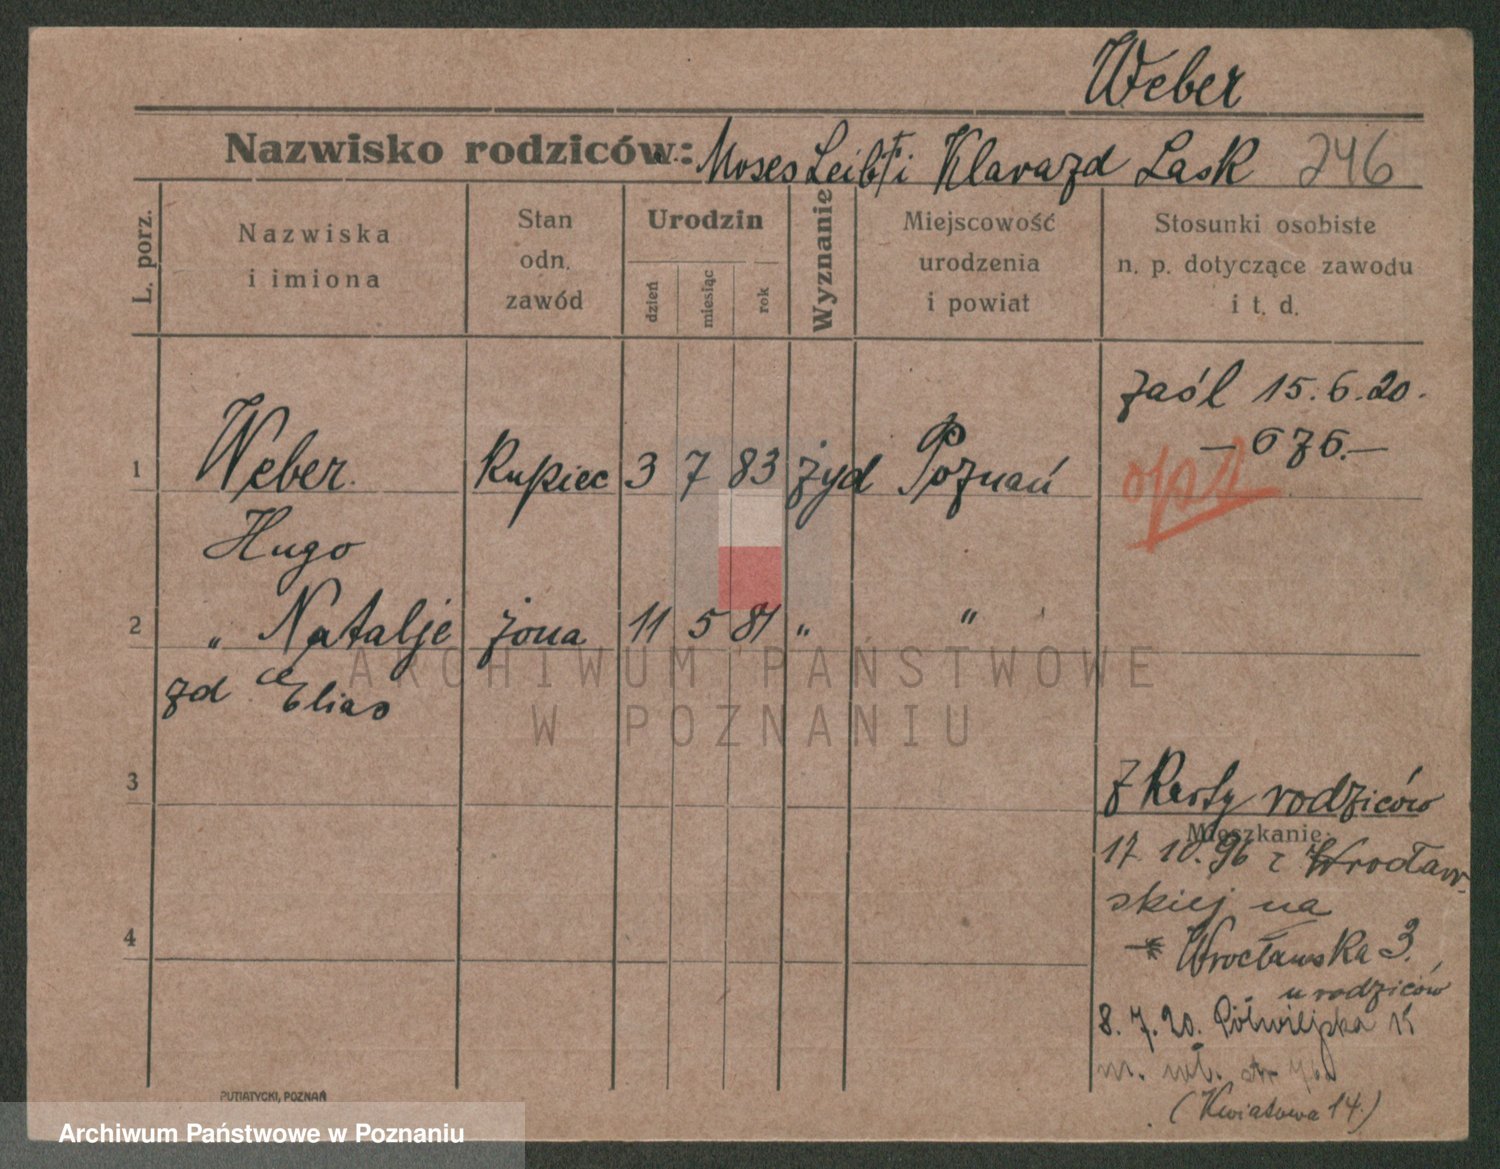 Weber
Nazwisko rodziców: Moses Leib i Klara zd Lask 246
L. porz.
Nazwiska
i imiona
Stan
odn.
zawód
Urodzin
dzień
miesiąc
rok
Wyznanie
Miejscowość
urodzenia
i powiat
Stosunki osobiste
n. p. dotyczące zawodu
i t. d.
zaśl 15.6.20.
— 676.—
1 Weber kupiec 3 7 83 żyd Poznań
Hugo
2 „ Natalje żona 11 5 81 „ „
zd Elias
3
z Karty rodziców
Mieszkanie:
17 10.96 z Wrocław-
skiej na
4
Wrocławska 3.
u rodziców
8.7.20. Półwiejska
(Kwiatowa 14.)
PUTIATYCKI, POZNAŃ
ARCHIWUM PAŃSTWOWE
W POZNANIU
Archiwum Państwowe w Poznaniu